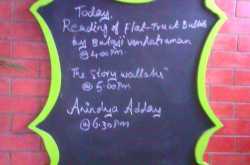 Today,
Reading of Flat-Truck Bullets
by Balaji Venkatraman
@ 4:00pm
"The Story wallahs"
@ 5:00pm
Anindya Adday
@ 6:30pm